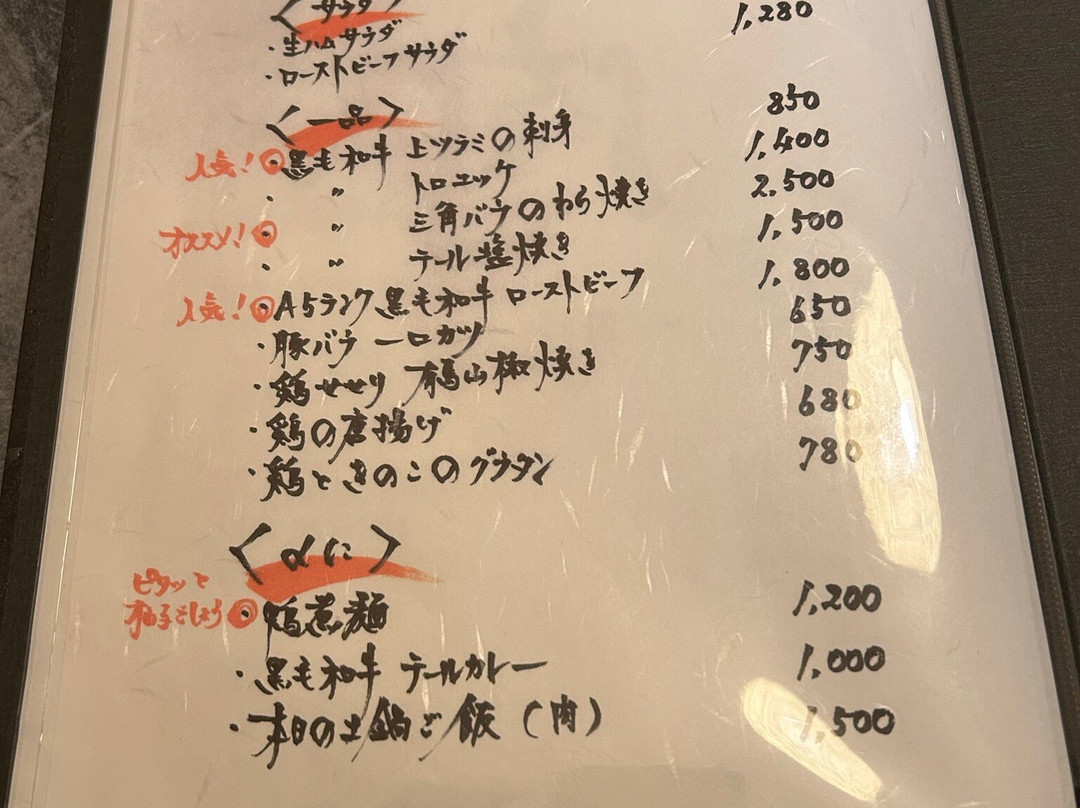 〈サラダ〉
・生ハムサラダ
・ローストビーフサラダ 1,280
〈一品〉
人気!◎・黒毛和牛 上ツラミの刺身 850
・ 〃 トロユッケ 1,400
オススメ!◎ 〃 三角バラのわら焼き 2,500
・ 〃 テール塩焼き 1,500
人気!◎・A5ランク 黒毛和牛 ローストビーフ 1,800
・豚バラ 一口カツ 650
・鶏せせり 有馬山椒焼き 750
・鶏の唐揚げ 680
・鶏ときのこのグラタン 780
〈〆に〉
ピリッと
柚子ごしょう◎・鶏煮麺 1,200
・黒毛和牛 テールカレー 1,000
・本日の土鍋ご飯(肉) 1,500